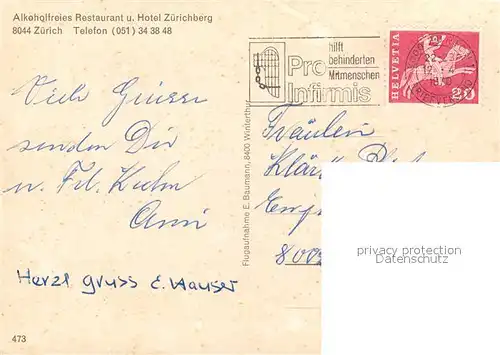 Alkoholfreies Restaurant u. Hotel Zürichberg
8044 Zürich Telefon (051) 34 38 48
Pro Infirmis
hilft
behinderten
Mitmenschen
HELVETIA
20
Viele Grüsse
senden Dir
u. Frl. Kuhn
Anni
Herzl. Gruss E. Hauser
Flugaufnahme E. Baumann, 8400 Winterthur
Fräulein
Klär
800
privacy protection
ansichtskarten-lexikon.de
473